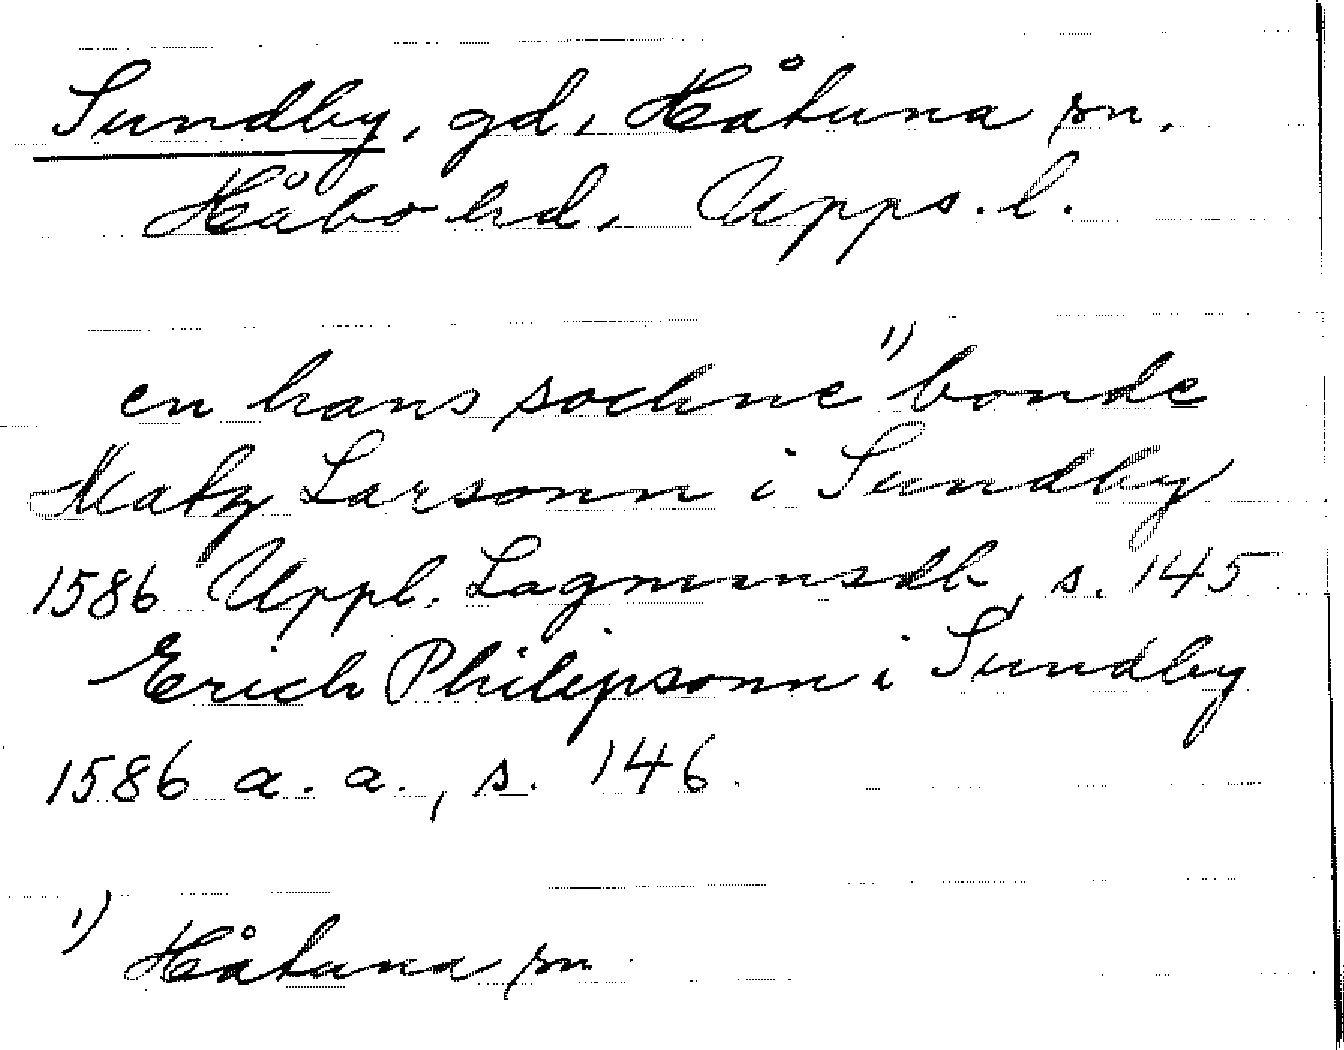 Sundby, gd, Håtuna sn.
Håbo hd. Upps. l.
en hans sochne 1) bonde
Matz Larsonn i Sundby
1586 Uppl. Lagmansdb, s. 145
Erich Philipsonn i Sundby
1586 a. a., s. 146.
1) Håtuna sn